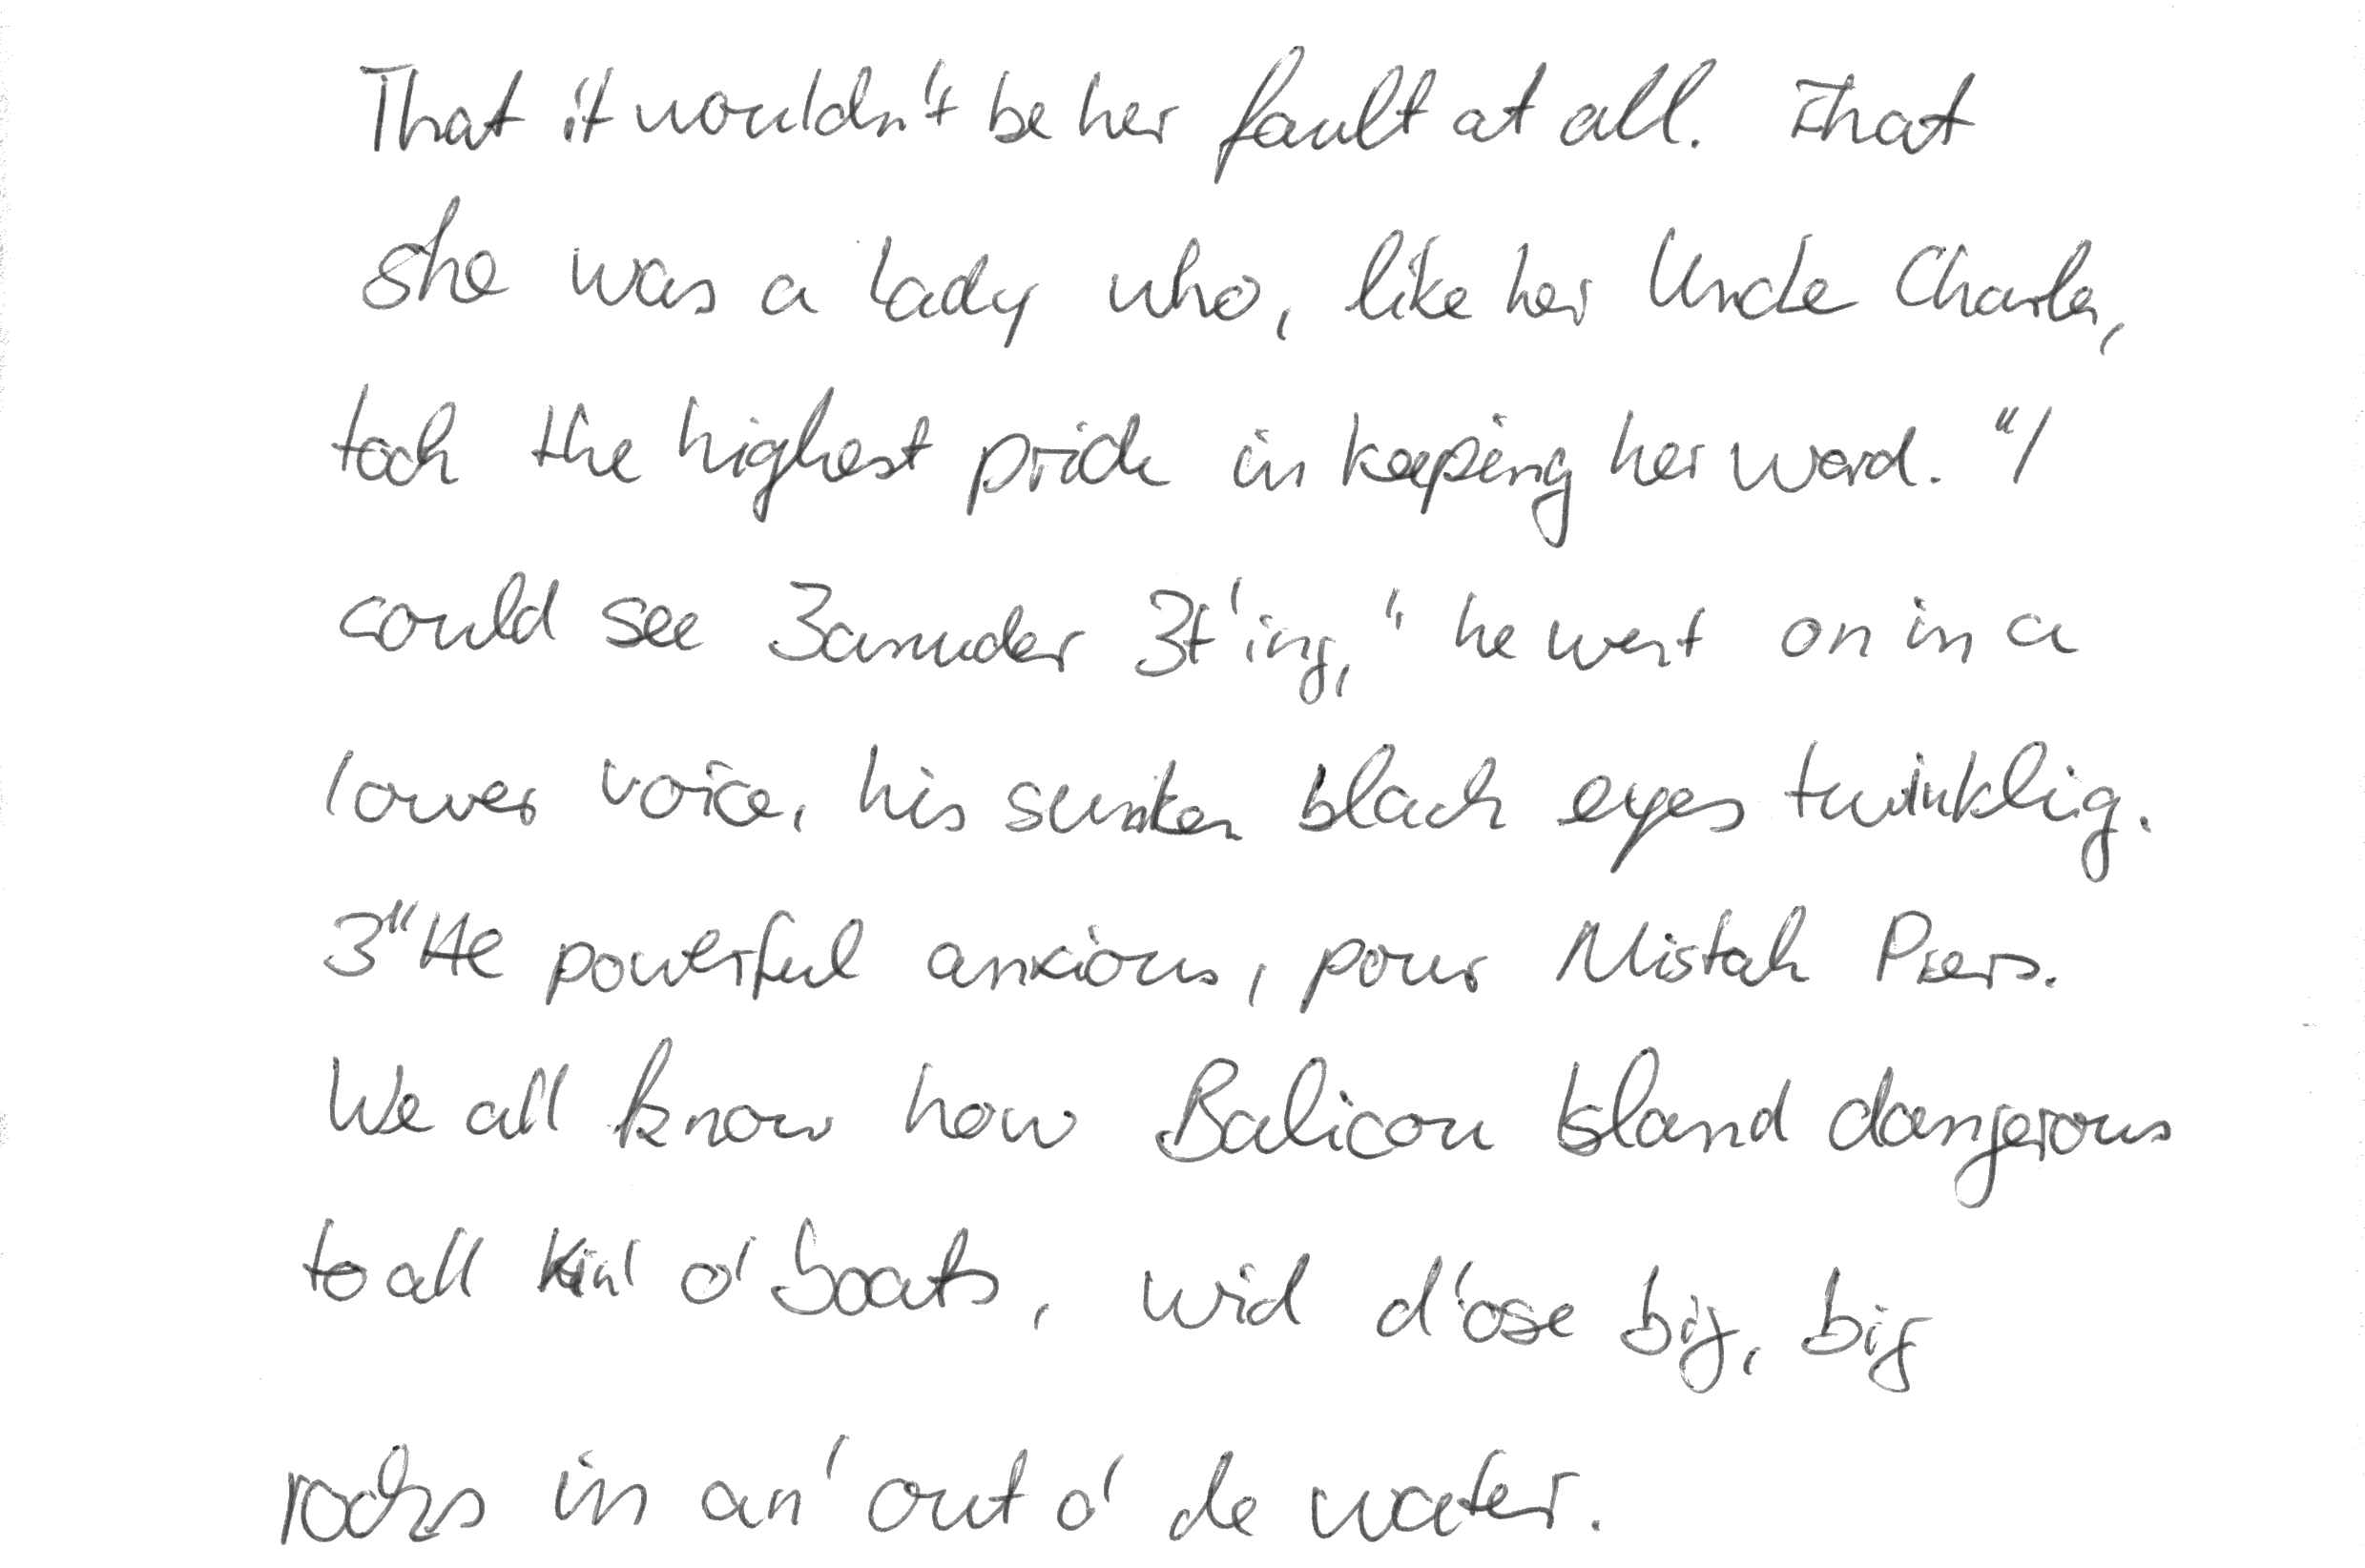 That it wouldn't be her fault at all. That
she was a lady who, like her Uncle Charles,
took the highest pride in keeping her word. "I
could see 3amuder 3t'ing," he went on in a
lower voice, his sunken black eyes twinklig.
3"He powerful anxious, pour Mistah Piers.
We all know how Balicou Island dangerous
to all kin' o' boats, wid d'ose big, big
rocks in an' out o' de water.